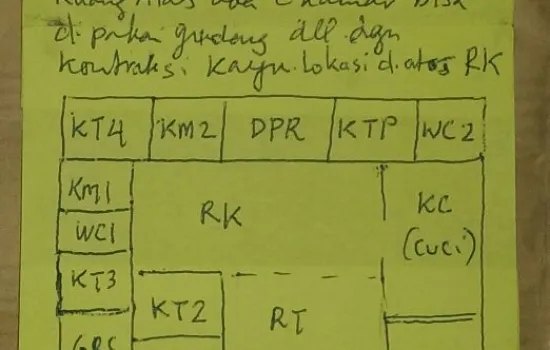 Ruang atas ada 2 kamar bisa
dipakai gudang dll dgn
kontraksi kayu. lokasi diatas RK
KT4 KM2 DPR KTP WC2
KM1
RK
KC
WC1
(cuci)
KT3
KT2
RT